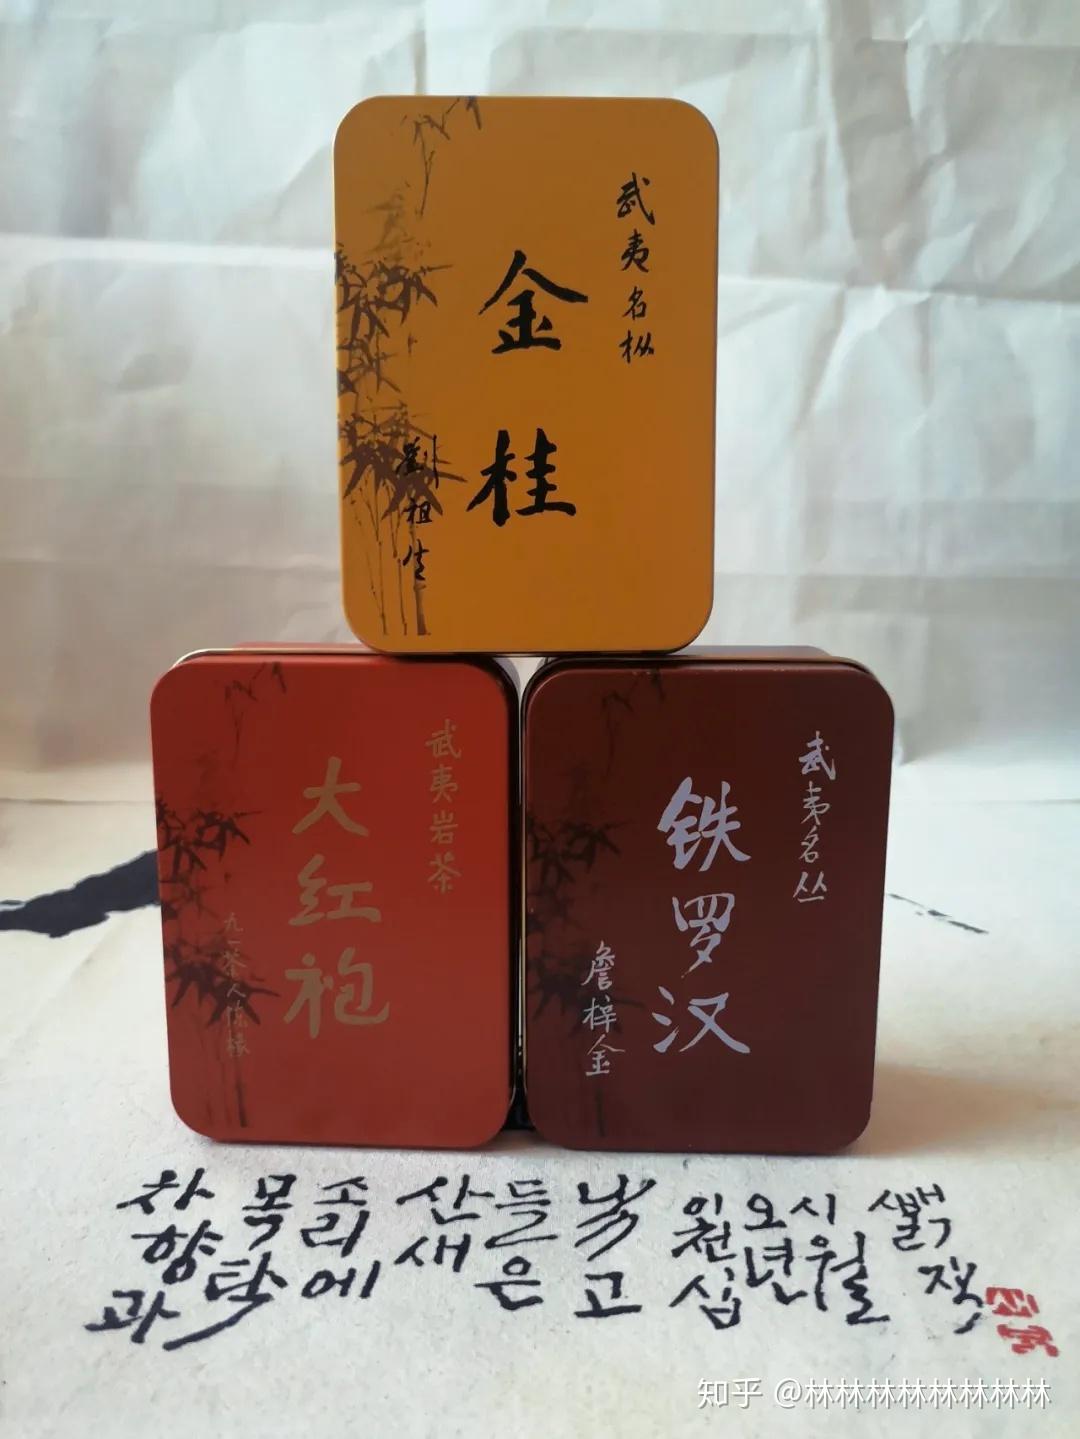 武夷名枞
金桂
劉祖生
武夷岩茶
大红袍
九一茶人陈椽
武夷名丛
铁罗汉
詹梓金
차향과
목탁
소리에
산새
들은
고
이천십
오년
시월
知乎 @林林林林林林林林